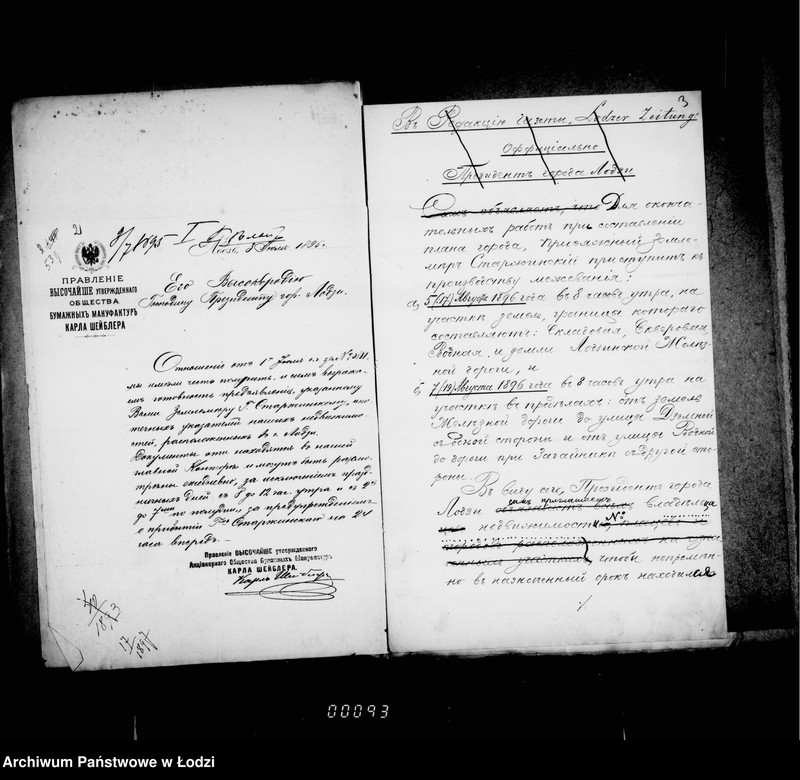 2)
8/7 1895 I
Лодзь, 5 Июля 1895 г.
ПРАВЛЕНІЕ
ВЫСОЧАЙШЕ УТВЕРЖДЕННАГО
ОБЩЕСТВА
БУМАЖНЫХЪ МАНУФАКТУРЪ
КАРЛА ШЕЙБЛЕРА
Его Высокородію
Господину Президенту гор. Лодзи.
Отношеніе отъ 1го Іюля с.г. за №
мы имѣли честь получить, и симъ выража-
емъ готовность предъявленія, указанному
Вами Землемѣру Г. Старжинскому, ипо-
течныхъ указателей нашихъ недвижимо-
стей, расположенныхъ въ г. Лодзи.
Документы эти находятся въ нашей
главной Конторѣ и могутъ быть разсмо-
трѣны ежедневно, за исключеніемъ празд-
ничныхъ дней съ 8 до 12 час. утра и съ 2
до 7 по полудни, за предупрежденіемъ
о прибытіи Г. Старжинскаго на 24
часа впередъ.
Правленіе ВЫСОЧАЙШЕ утвержденнаго
Акціонернаго Общества Бумажныхъ Мануфактуръ
КАРЛА ШЕЙБЛЕРА.
Карлъ Шейблеръ
1893
17/1897
3
Въ Редакцію газеты "Lodzer Zeitung"
Оффиціально
Президентъ города Лодзи
симъ объявляетъ, что Для оконча-
тельныхъ работъ при составленіи
плана города, Присяжный Земле-
мѣръ Старжинскій приступитъ къ
производству межеванія:
а) 5/(17) Августа 1896 года въ 8 часовъ утра, на
участкѣ земель, границы котораго
составляютъ: Складовая, Скверовая,
Видная, и земли Лодзинской Желѣз-
ной дороги, и
б) 7/(19) Августа 1896 года въ 8 часовъ утра на
участкѣ въ предѣлахъ: отъ земель
Желѣзной дороги до улицы Дзѣльной
съ одной стороны и отъ улицы Видной
до дороги при Загайникѣ съ другой сто-
роны.
Въ виду сего, Президентъ города
симъ приглашаетъ
Лодзи владѣльца
недвижимости №
чтобы непремѣн-
но въ назначенный срокъ находился
./.
00093
Archiwum Państwowe w Łodzi